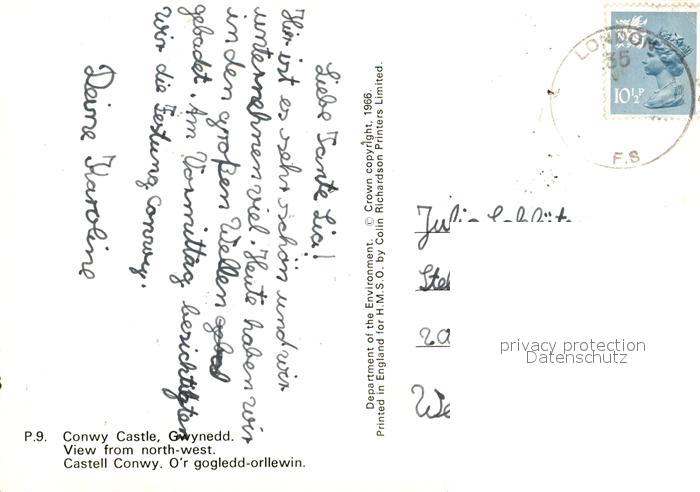 Liebe Tante Lici!
Hier ist es sehr schön und wir
unternehmen viel. Heute haben wir
in den großen Wellen gebad
gebadet. Am Vormittag besichtigten
wir die Festung Conwy.
Deine Karoline
P.9. Conwy Castle, Gwynedd.
View from north-west.
Castell Conwy. O'r gogledd-orllewin.
Department of the Environment. © Crown copyright, 1966.
Printed in England for H.M.S.O. by Colin Richardson Printers Limited.
LONDON
35
F.S
10½P
privacy protection
Datenschutz